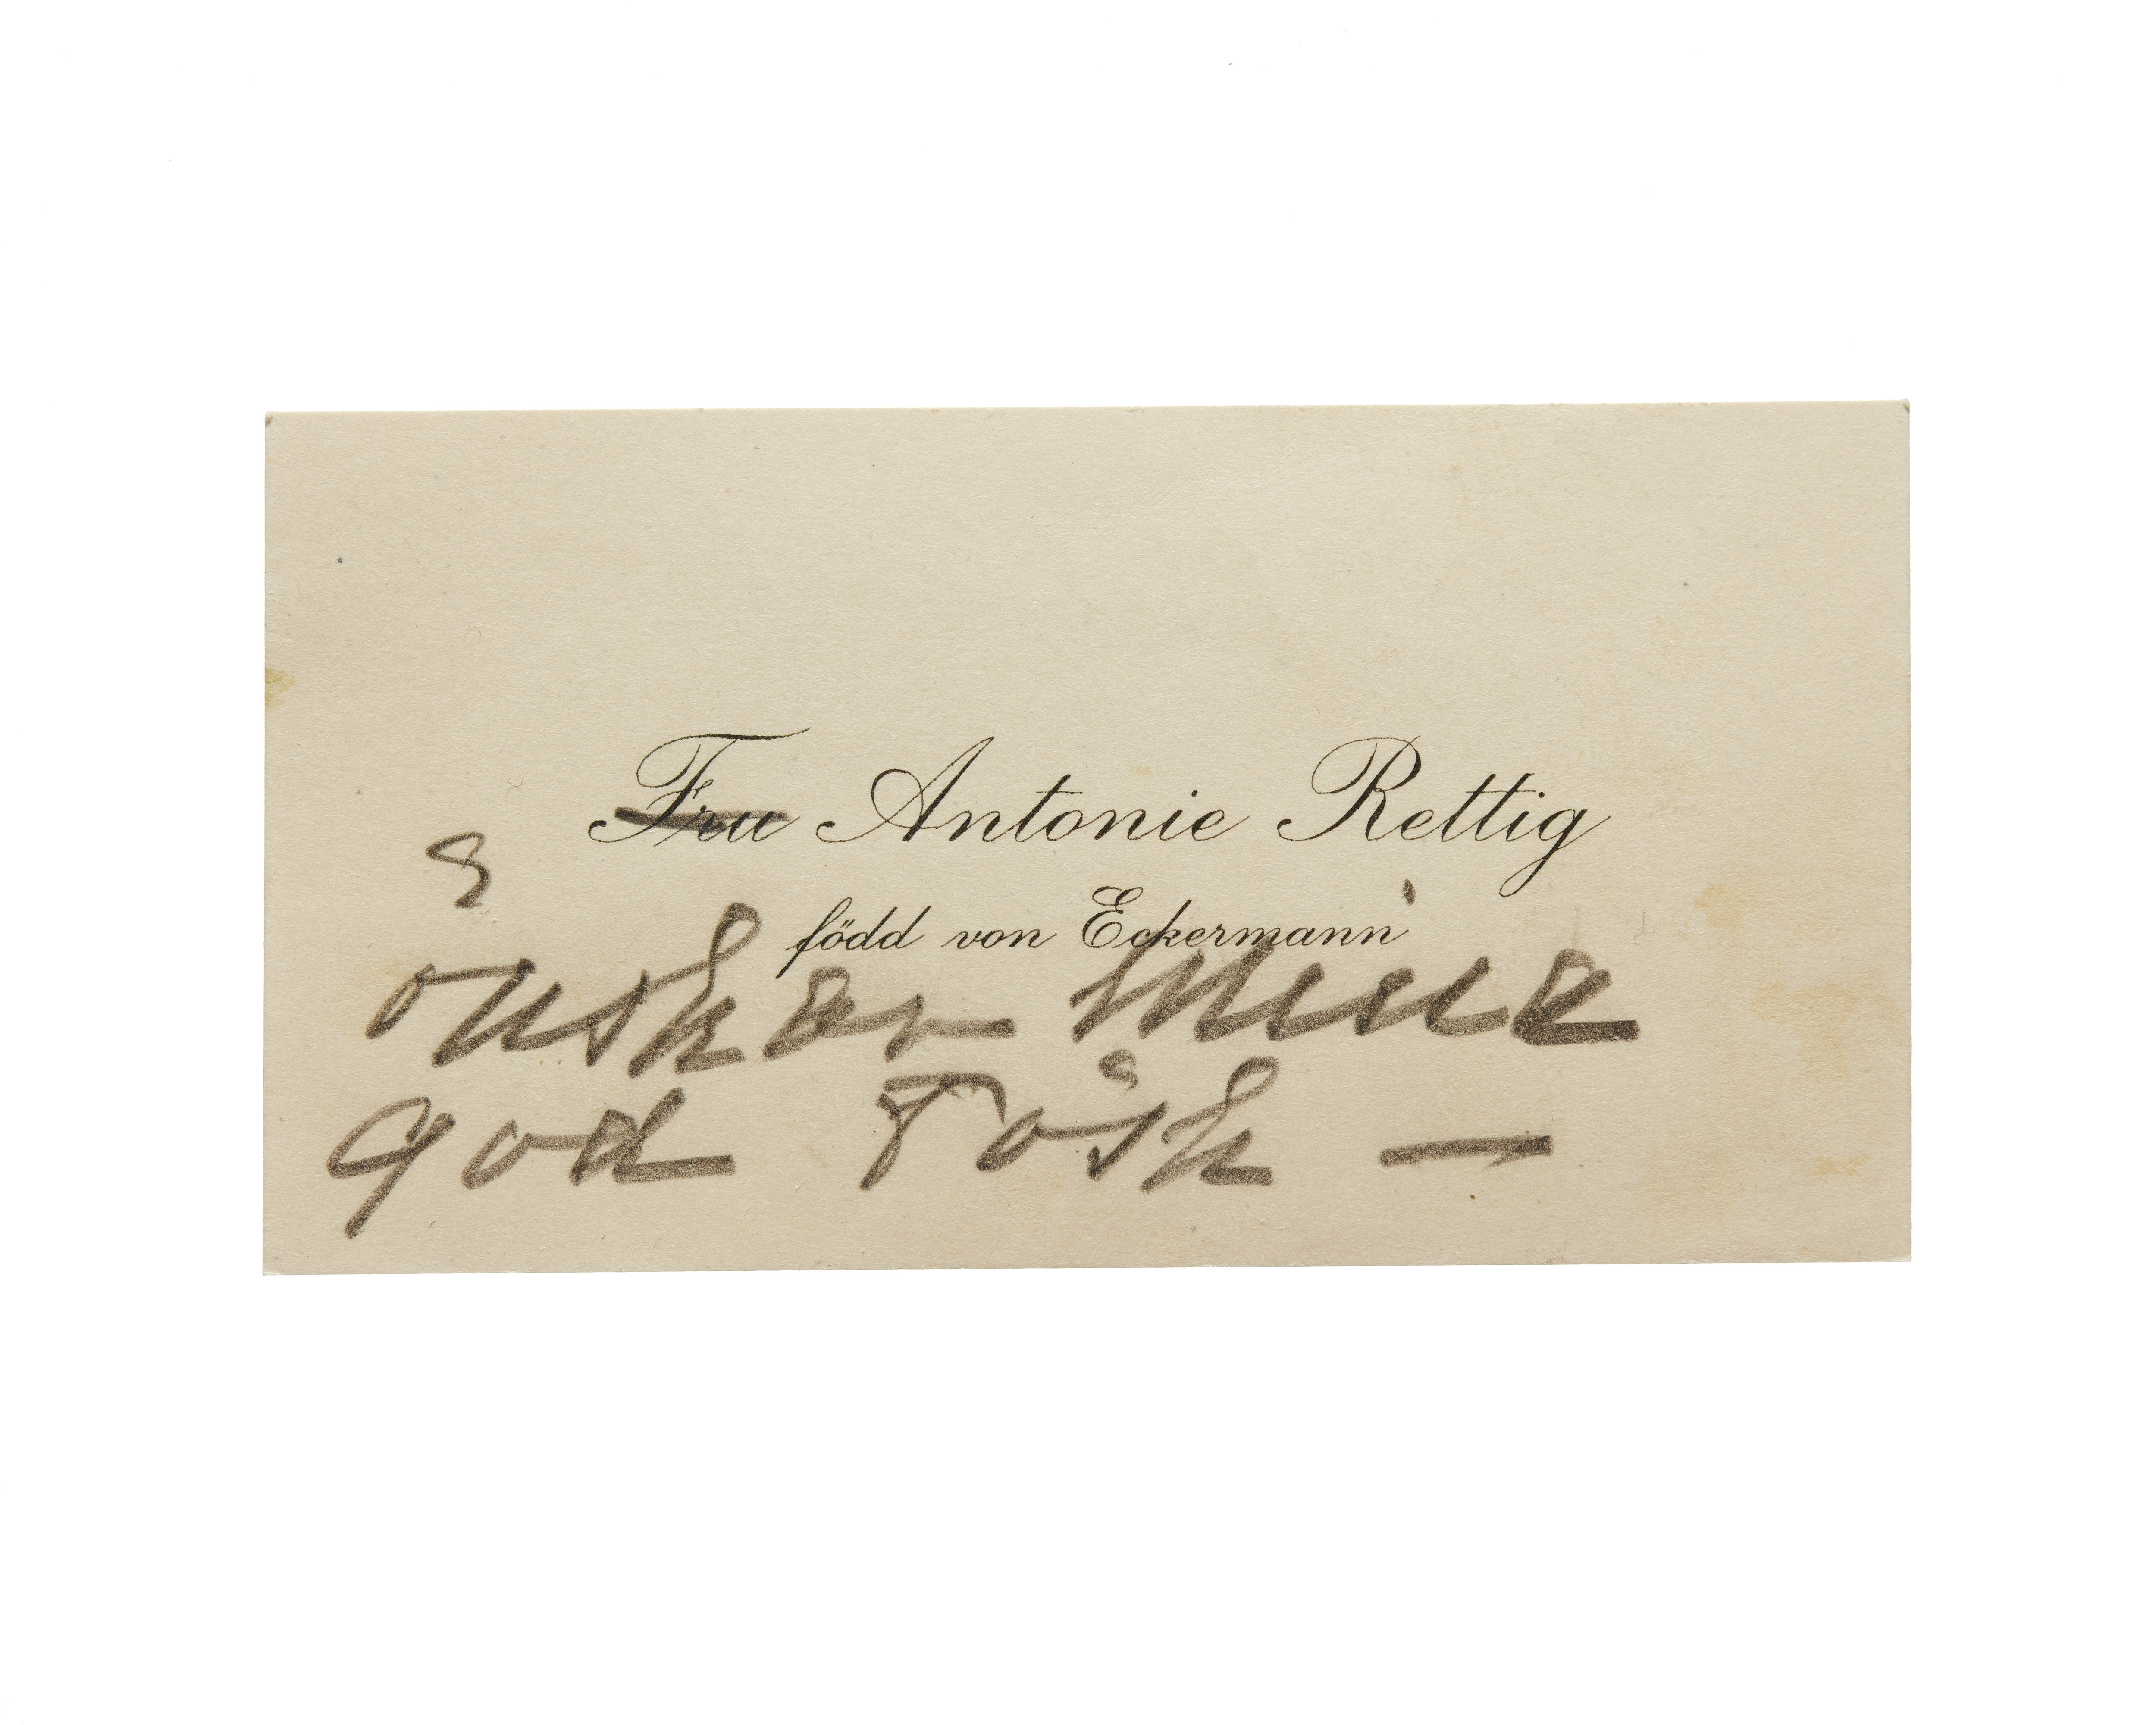 Fru Antonie Rettig
född von Eckermann
önskar Mina
god Påsk —